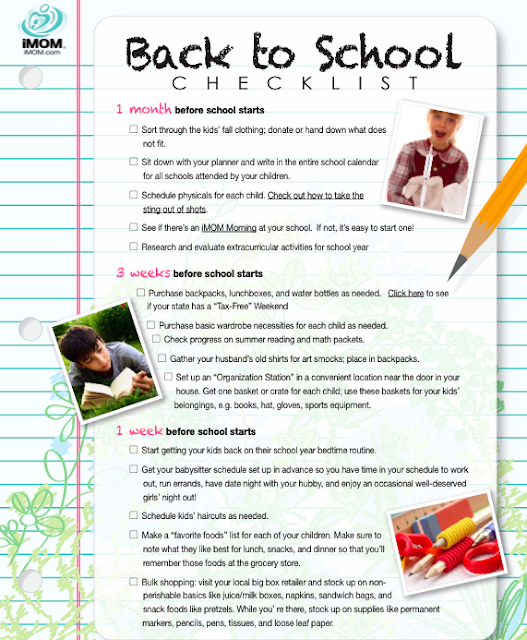 iMOM®
iMOM.com
Back to School
CHECKLIST
1 month before school starts
Sort through the kids' fall clothing; donate or hand down what does
not fit.
Sit down with your planner and write in the entire school calendar
for all schools attended by your children.
Schedule physicals for each child. Check out how to take the
sting out of shots.
See if there's an iMOM Morning at your school. If not, it's easy to start one!
Research and evaluate extracurricular activities for school year
3 weeks before school starts
Purchase backpacks, lunchboxes, and water bottles as needed. Click here to see
if your state has a "Tax-Free" Weekend
Purchase basic wardrobe necessities for each child as needed.
Check progress on summer reading and math packets.
Gather your husband's old shirts for art smocks; place in backpacks.
Set up an "Organization Station" in a convenient location near the door in your
house. Get one basket or crate for each child; use these baskets for your kids'
belongings, e.g. books, hat, gloves, sports equipment.
1 week before school starts
Start getting your kids back on their school year bedtime routine.
Get your babysitter schedule set up in advance so you have time in your schedule to work
out, run errands, have date night with your hubby, and enjoy an occasional well-deserved
girls' night out!
Schedule kids' haircuts as needed.
Make a "favorite foods" list for each of your children. Make sure to
note what they like best for lunch, snacks, and dinner so that you'll
remember those foods at the grocery store.
Bulk shopping: visit your local big box retailer and stock up on non-
perishable basics like juice/milk boxes, napkins, sandwich bags, and
snack foods like pretzels. While you' re there, stock up on supplies like permanent
markers, pencils, pens, tissues, and loose leaf paper.